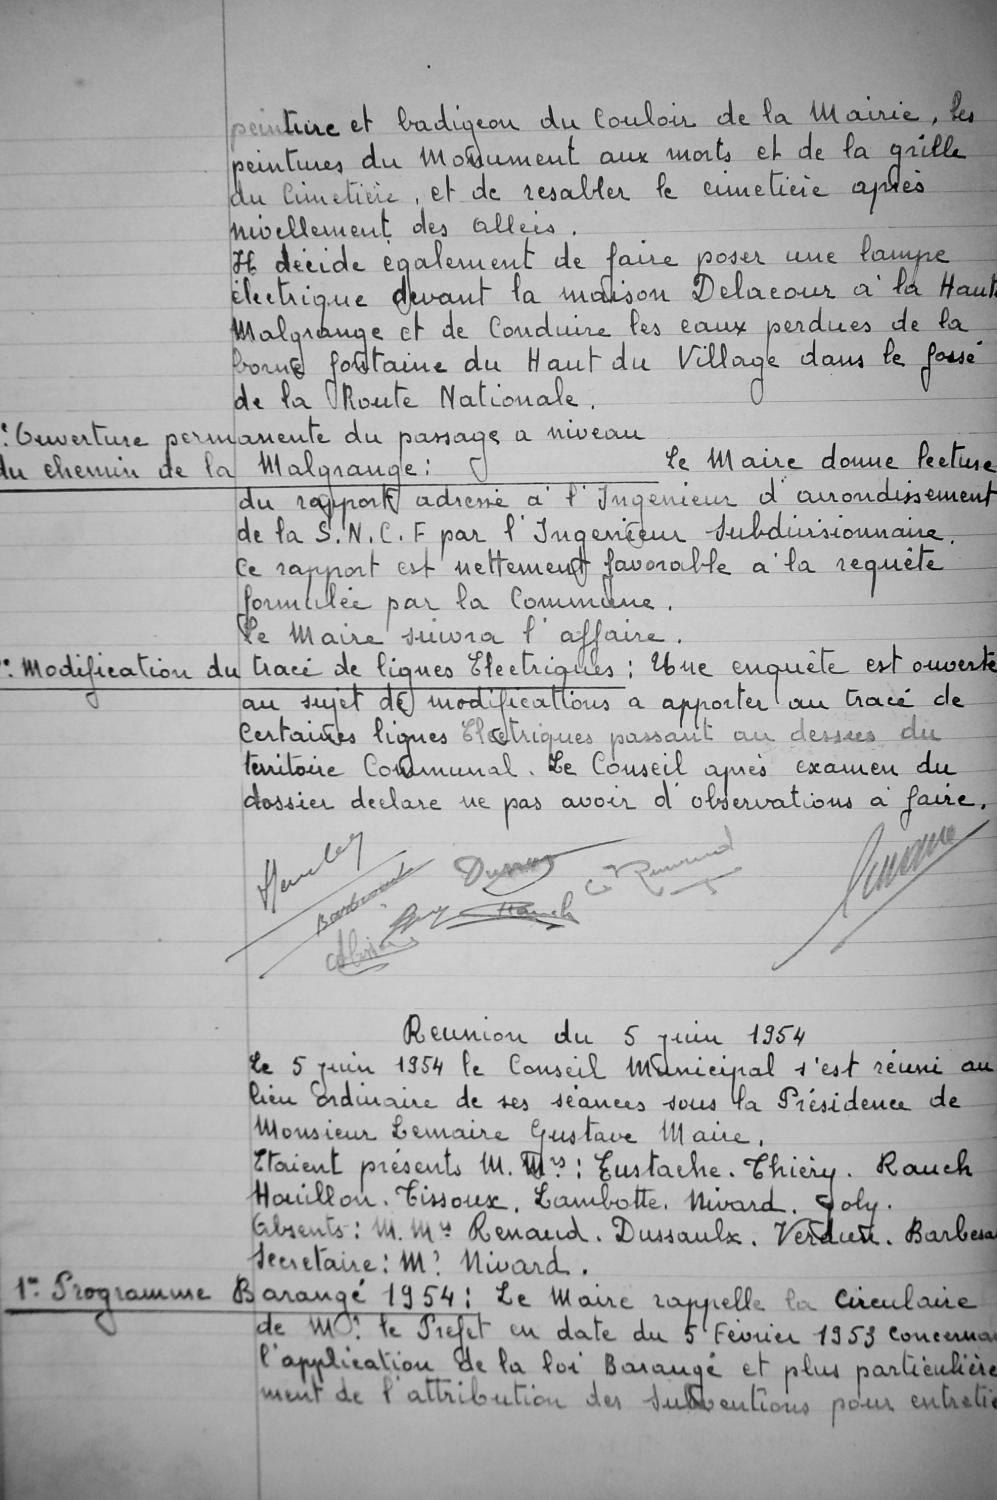 peinture et badigeon du Couloir de la Mairie, les
peintures du Monument aux morts et de la grille
du Cimetière, et de resabler le cimetière après
nivellement des allées.
Il décide également de faire poser une lampe
électrique devant la maison Delacour à la Haute
Malgrange et de Conduire les eaux perdues de la
borne fontaine du Haut du Village dans le fossé
de la Route Nationale.
Ouverture permanente du passage a niveau
du chemin de la Malgrange: Le Maire donne lecture
du rapport adressé à l'Ingenieur d'arrondissement
de la S.N.C.F par l'Ingenieur Subdivisionnaire.
Ce rapport est nettement favorable a la requête
formulée par la Commune.
Le Maire suivra l'affaire.
Modification du tracé de lignes Electriques: Une enquête est ouverte
au sujet de modifications a apporter au tracé de
Certaines lignes Electriques passant au dessus du
territoire Communal. Le Conseil après examen du
dossier declare ne pas avoir d'observations à faire.
Barbesant Dussaulx Renaud
Rauch
Reunion du 5 juin 1954
Le 5 juin 1954 le Conseil Municipal s'est réuni au
lieu ordinaire de ses séances sous la Présidence de
Monsieur Lemaire Gustave Maire.
Etaient présents M.Mrs: Eustache. Thiéry. Rauch
Houillon. Tissoux. Lambotte. Nivard. Joly.
Absents: M.Mrs Renaud. Dussaulx. Verdun. Barbesa
Secretaire: Mr Nivard.
1er Programme Barangé 1954: Le Maire rappelle la Circulaire
de Mr le Prefet en date du 5 Février 1953 concerna
l'application de la loi Barangé et plus particulière
ment de l'attribution des Subventions pour entretie